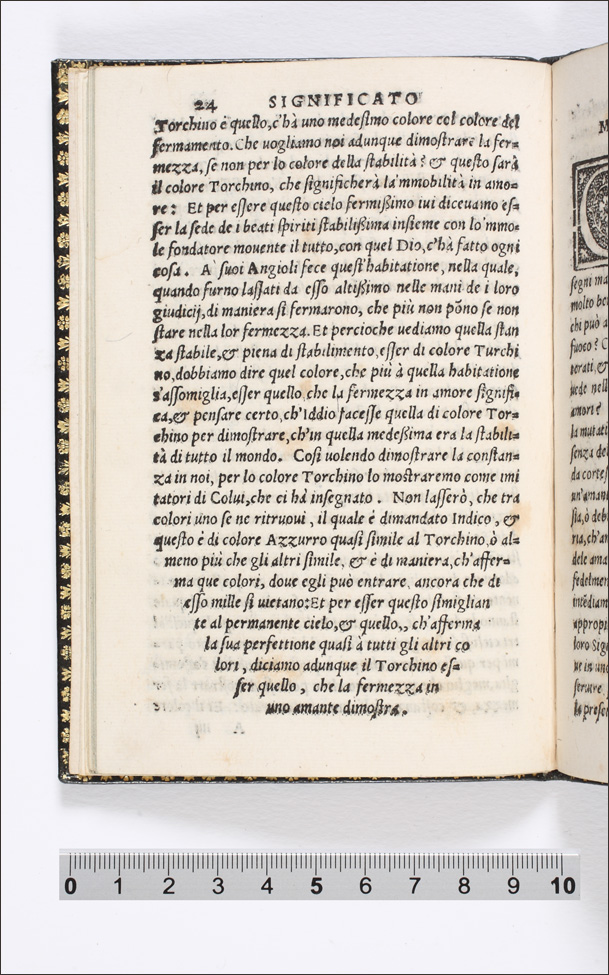 24 SIGNIFICATO
Torchino è quello, c'hà uno medesimo colore col colore del
fermamento. Che uogliamo noi adunque dimostrare la fer=
mezza, se non per lo colore della stabilità? & questo sarà
il colore Torchino, che significherà la'mmobilità in amo=
re: Et per essere questo cielo fermißimo iui diceuamo es=
ser la sede de i beati spiriti stabilißima insieme con lo'mmo=
le fondatore mouente il tutto, con quel Dio, c'hà fatto ogni
cosa. A suoi Angioli fece quest'habitatione, nella quale,
quando furno lassati da esso altißimo nelle mani de i loro
giudicij, di maniera si fermarono, che più non põno se non
stare nella lor fermezza. Et percioche uediamo quella stan
za stabile, & piena di stabilimento, esser di colore Turchi
no, dobbiamo dire quel colore, che più à quella habitatione
s'assomiglia, esser quello, che la fermezza in amore signifi=
ca, & pensare certo, ch'Iddio facesse quella di colore Tor=
chino per dimostrare, ch'in quella medeßima era la stabili=
tà di tutto il mondo. Così uolendo dimostrare la constan=
za in noi, per lo colore Torchino lo mostraremo come imi
tatori di Colui, che ci hà insegnato. Non lasserò, che tra
colori uno se ne ritruoui, il quale è dimandato Indico, &
questo è di colore Azzurro quasi simile al Torchino, ò al=
meno più che gli altri simile, & è di maniera, ch'affer=
ma que colori, doue egli può entrare, ancora che di
esso mille si uietano: Et per esser questo simiglian
te al permanente cielo, & quello,, ch'afferma
la sua perfettione quasi à tutti gli altri co
lori, diciamo adunque il Torchino es=
ser quello, che la fermezza in
uno amante dimostra.
M
segni ma
molto be
chi può a
fuoco? C
uede nell
amori?
la mutati
senza del
da cortes
un'aman
ria, ch'an
dele ama
fedelmen
intẽdiam
appropi
loro Sig
ue in uno
seruire
la presen
0 1 2 3 4 5 6 7 8 9 10